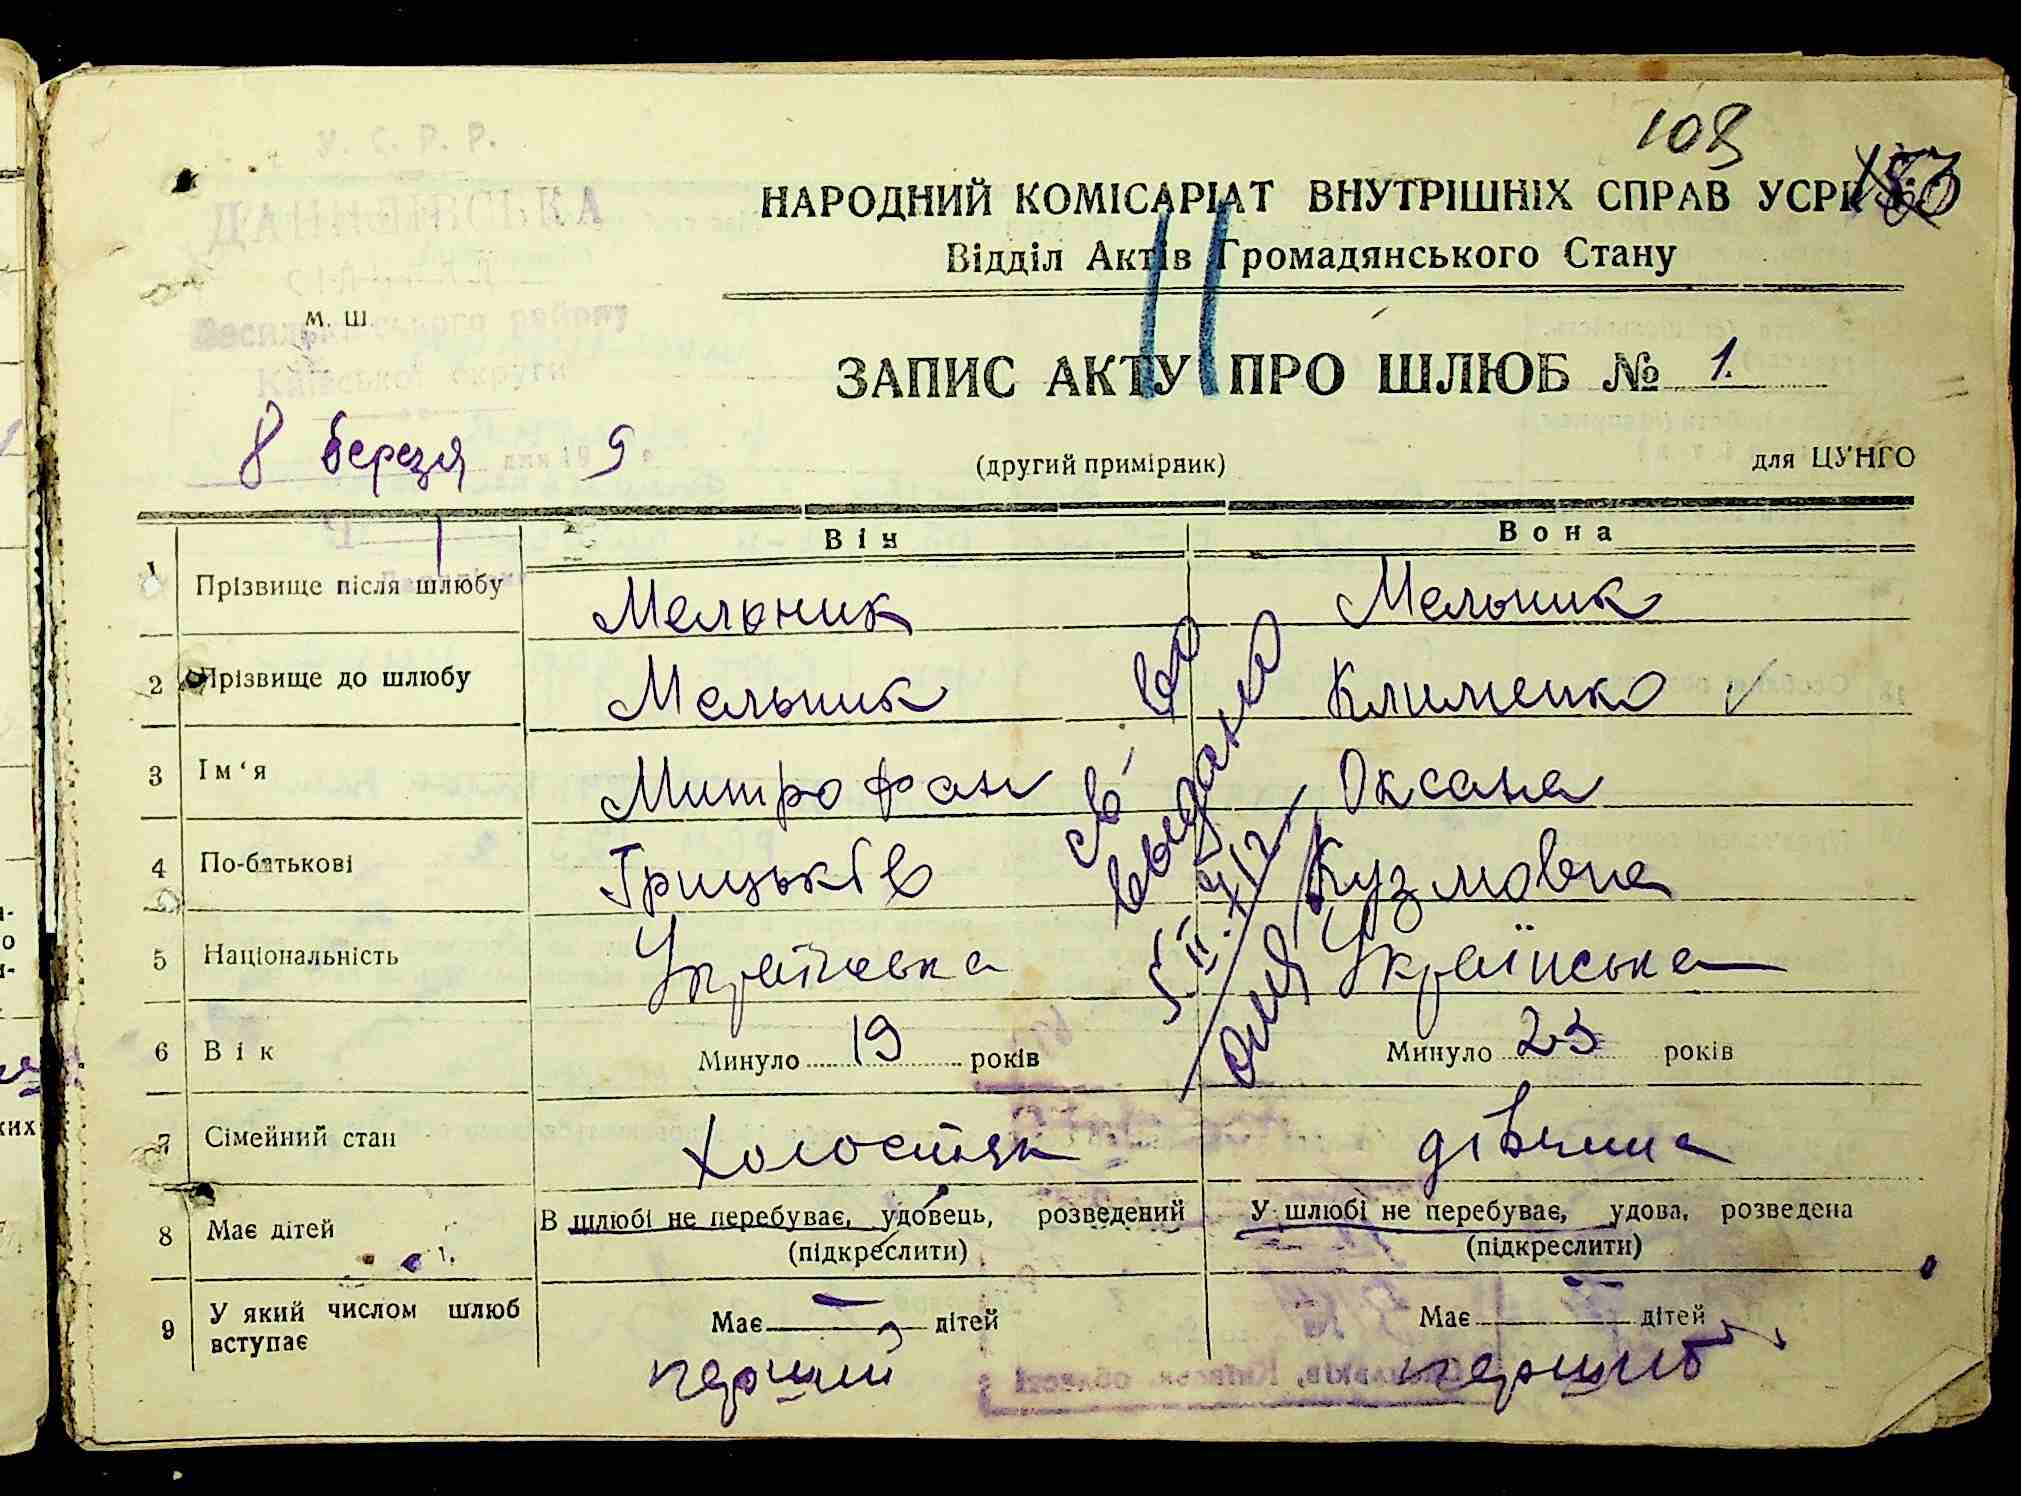 108
У. С. Р. Р.
НАРОДНИЙ КОМІСАРІАТ ВНУТРІШНІХ СПРАВ УСРР
ДАНИЛІВСЬКА
Відділ Актів Громадянського Стану
м. Ш.
Васильківського району
Київської округи
ЗАПИС АКТУ ПРО ШЛЮБ № 1.
8 березня дня 19 9 р
(другий примірник)
для ЦУНГО
Він Вона
1 Прізвище після шлюбу Мельник Мельник
2 Прізвище до шлюбу Мельник Клименко
3 Ім‘я Митрофан Оксана
4 По-батькові Грицьків Кузмовна
5 Національність Українська Українська
6 Вік Минуло 19 років Минуло 23 років
7 Сімейний стан Холостяк дівчина
8 Має дітей В шлюбі не перебуває, удовець, розведений У шлюбі не перебуває, удова, розведена
(підкреслити) (підкреслити)
9 У який числом шлюб вступає Має — дітей Має — дітей
перший перший
св-во
выдано
5.II.